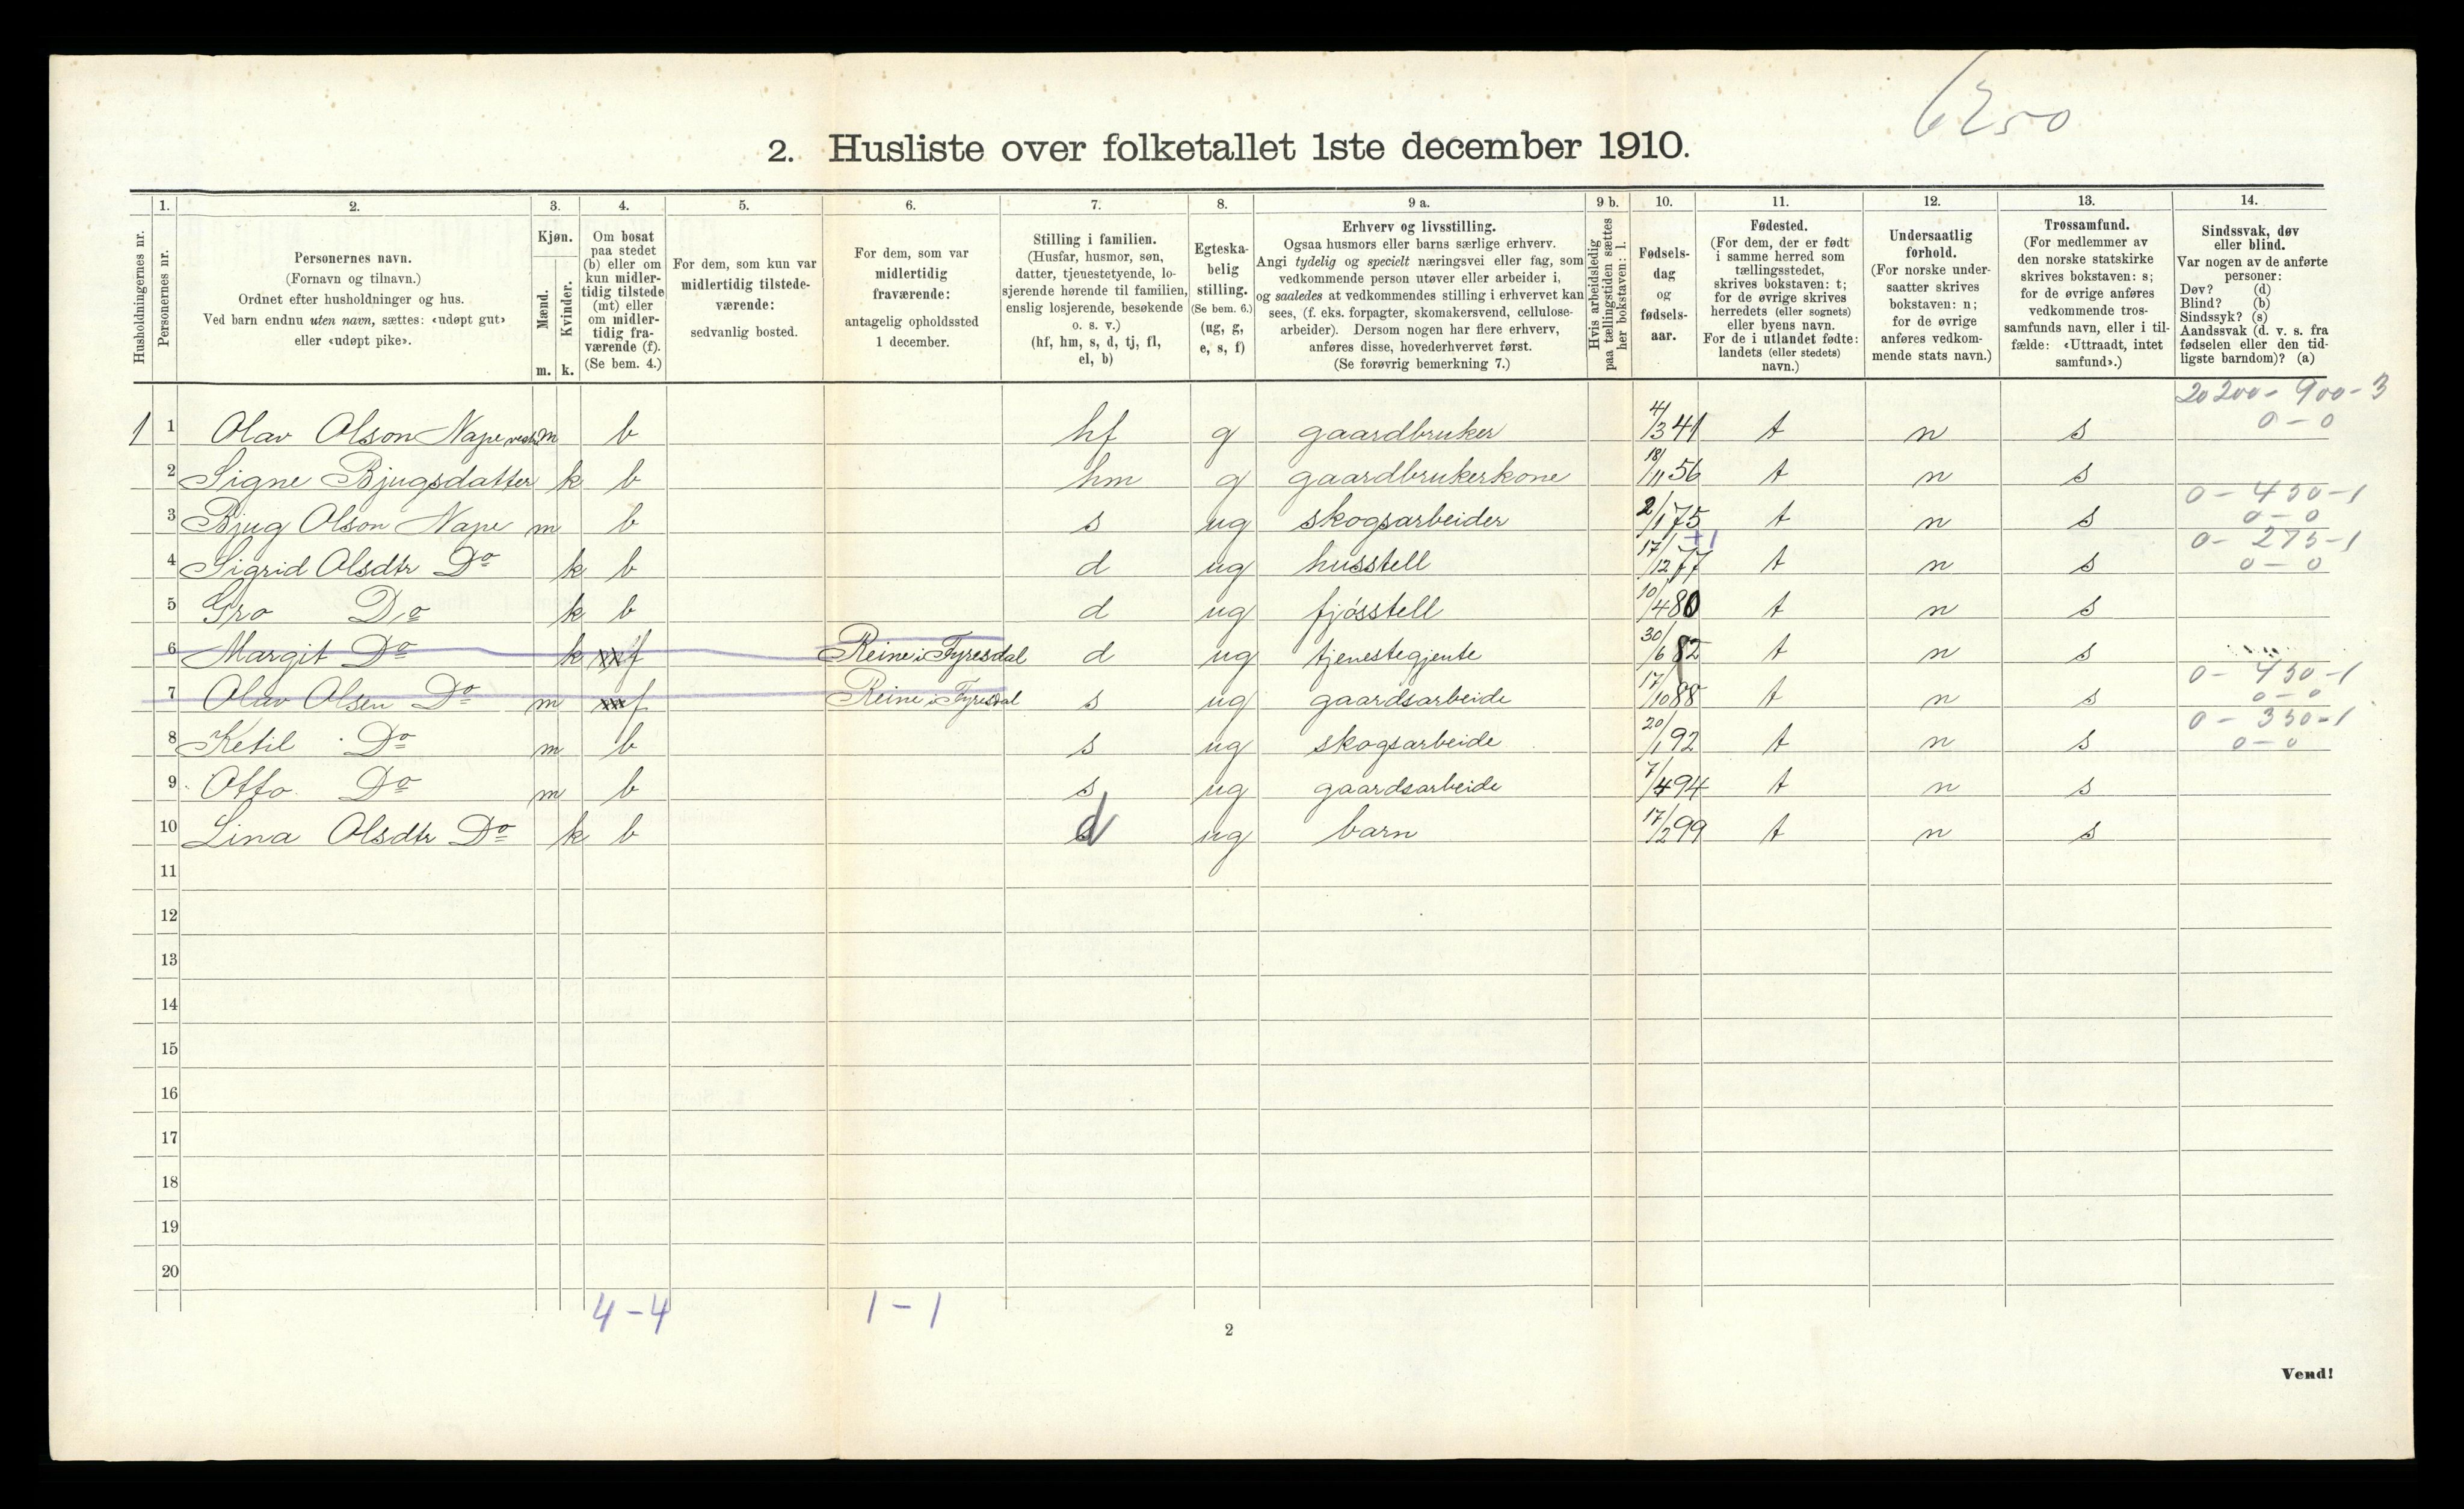 6250
2. Husliste over folketallet 1ste december 1910.
Husholdningernes nr.
1.
Personernes nr.
2.
Personernes navn.
(Fornavn og tilnavn.)
Ordnet efter husholdninger og hus.
Ved barn endnu uten navn, sættes: «udøpt gut»
eller «udøpt pike».
3.
Kjøn.
Mænd.
Kvinder.
m. k.
4.
Om bosat
paa stedet
(b) eller om
kun midler-
tidig tilstede
(mt) eller
om midler-
tidig fra-
værende (f).
(Se bem. 4.)
5.
For dem, som kun var
midlertidig tilstede-
værende:
sedvanlig bosted.
6.
For dem, som var
midlertidig
fraværende:
antagelig opholdssted
1 december.
7.
Stilling i familien.
(Husfar, husmor, søn,
datter, tjenestetyende, lo-
sjerende hørende til familien,
enslig losjerende, besøkende
o. s. v.)
(hf, hm, s, d, tj, fl,
el, b)
8.
Egteska-
belig
stilling.
(Se bem. 6.)
(ug, g,
e, s, f)
9 a.
Erhverv og livsstilling.
Ogsaa husmors eller barns særlige erhverv.
Angi tydelig og specielt næringsvei eller fag, som
vedkommende person utøver eller arbeider i,
og saaledes at vedkommendes stilling i erhvervet kan
sees, (f. eks. forpagter, skomakersvend, cellulose-
arbeider). Dersom nogen har flere erhverv,
anføres disse, hovederhvervet først.
(Se forøvrig bemerkning 7.)
9 b.
Hvis arbeidsledig
paa tællingstiden sættes
her bokstaven: l.
10.
Fødsels-
dag
og
fødsels-
aar.
11.
Fødested.
(For dem, der er født
i samme herred som
tællingsstedet,
skrives bokstaven: t;
for de øvrige skrives
herredets (eller sognets)
eller byens navn.
For de i utlandet fødte:
landets (eller stedets)
navn.)
12.
Undersaatlig
forhold.
(For norske under-
saatter skrives
bokstaven: n;
for de øvrige
anføres vedkom-
mende stats navn.)
13.
Trossamfund.
(For medlemmer av
den norske statskirke
skrives bokstaven: s;
for de øvrige anføres
vedkommende tros-
samfunds navn, eller i til-
fælde: «Uttraadt, intet
samfund».)
14.
Sindssvak, døv
eller blind.
Var nogen av de anførte
personer:
Døv? (d)
Blind? (b)
Sindssyk? (s)
Aandssvak (d. v. s. fra
fødselen eller den tid-
ligste barndom)? (a)
20200 - 900 - 3
1 1 Olav Olson Nape m b hf g gaardbruker 4/3 41 t n s 0 - 0
2 Signe Bjugsdatter k b hm g gaardbrukerkone 18/11 56 t n s
0 - 450 - 1
3 Bjug Olson Nape m b s ug skogsarbeider 2/1 75 t n s 0 - 0
+1 0 - 275 - 1
4 Sigrid Olsdtr Do k b d ug husstell 17/12 77 t n s 0 - 0
5 Gro Do k b d ug fjøsstell 10/4 80 t n s
6 Margit Do k f Reine i Fyresdal d ug tjenestegjente 30/6 82 t n s
0 - 450 - 1
7 Olav Olsen Do m f Reine i Fyresdal s ug gaardsarbeide 17/10 88 t n s 0 - 0
0 - 350 - 1
8 Ketil Do m b s ug skogsarbeide 20/1 92 t n s 0 - 0
9 Otto Do m b s ug gaardsarbeide 7/4 94 t n s
10 Lina Olsdtr Do k b d ug barn 17/2 99 t n s
11
12
13
14
15
16
17
18
19
20
4 - 4 1 - 1
2
Vend!